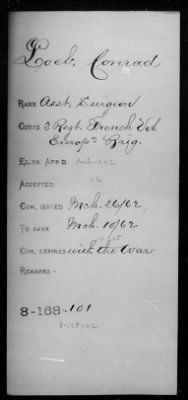 Loeb, Conrad
RANK Asst. Surgeon
CORPS 2 Regt. French Vol.
Europn Brig.
EL. OR APP'D
ACCEPTED
COM. ISSUED Mch. 26/62
TO RANK Mch. 10/62
COM. EXPIRES with the War
REMARKS
8-168-101